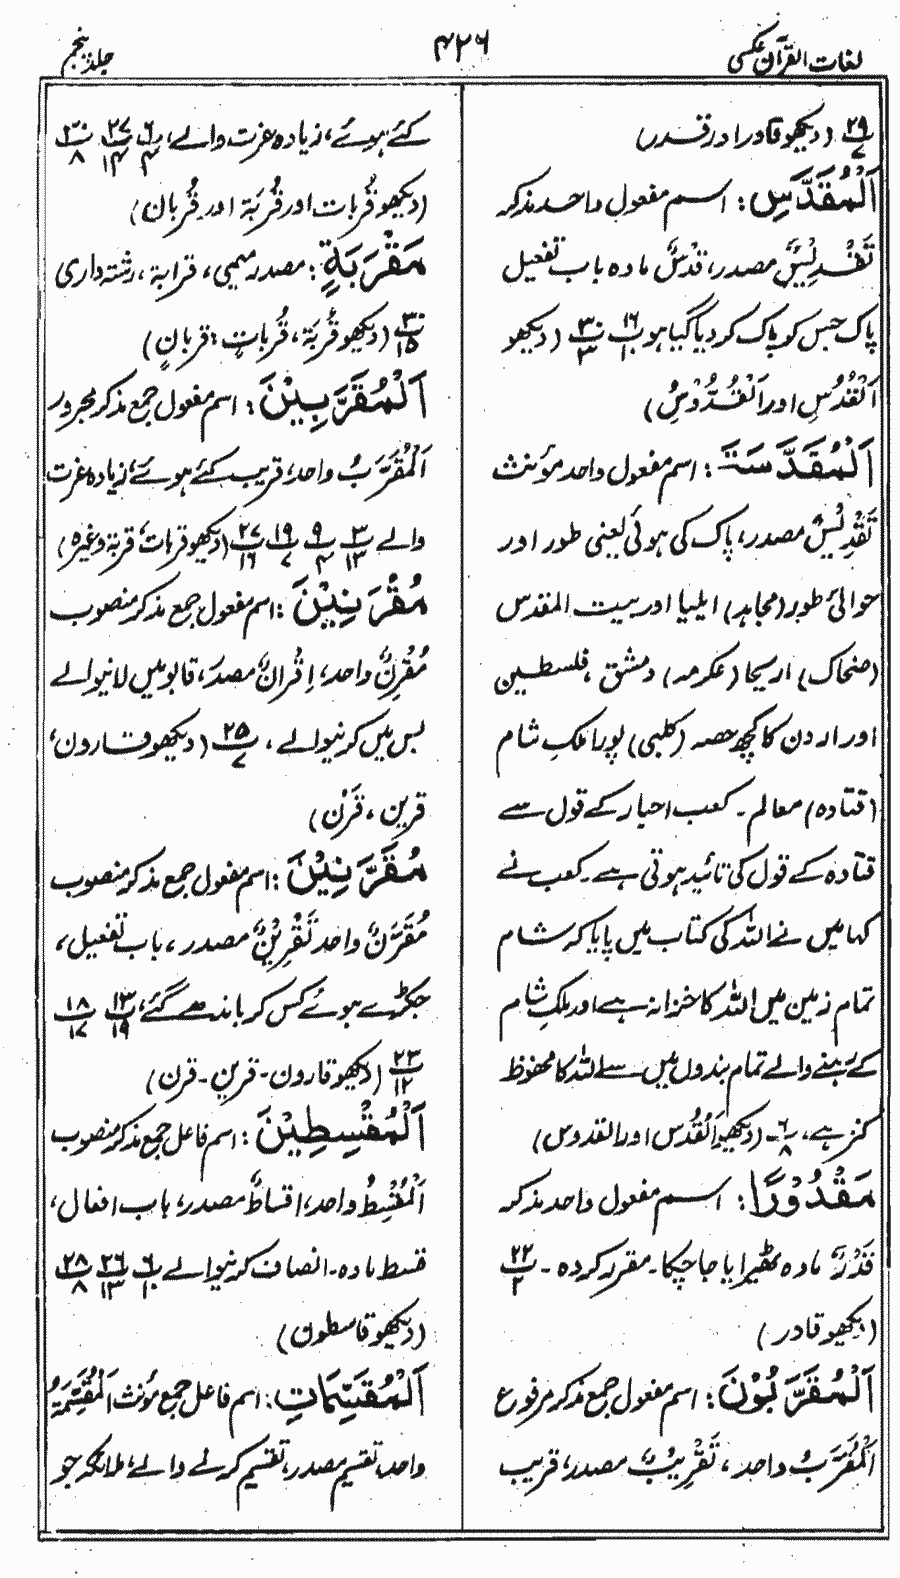 لغات القرآن عکسی
۴۲۶
جلد پنجم
۲۹/۷ (دیکھو قادر اور قدر)
اَلْمُقَدَّسِ: اسم مفعول واحد مذکر
تَقْدِیْسٌ مصدر، قدسٌ مادہ باب تفعیل
پاک جس کو پاک کر دیا گیا ہو ۱۶/۱۰ ۳۰/۳ (دیکھو
اَلْقُدُسِ اور اَلْقُدُّوْسُ)
اَلْمُقَدَّسَةَ: اسم مفعول واحد مؤنث
تَقْدِیْسٌ مصدر، پاک کی ہوئی یعنی طور اور
حوالیٔ طور (مجاہد) ایلیا اور بیت المقدس
(ضحاک) اریحا (عکرمہ) دمشق، فلسطین
اور اردن کا کچھ حصہ (کلبی) پورا ملکِ شام
(قتادہ) معالم۔ کعب احبار کے قول سے
قتادہ کے قول کی تائید ہوتی ہے۔ کعب نے
کہا میں نے اللہ کی کتاب میں پایا کہ شام
تمام زمین میں اللہ کا خزانہ ہے اور ملکِ شام
کے رہنے والے تمام بندوں میں سے اللہ کا محفوظ
کنز ہے، ۶/۸۔ (دیکھو اَلْقُدُس اور القدوس)
مَقْدُوْرًا: اسم مفعول واحد مذکر
قَدْرٌ مادہ ٹھیرایا جا چکا۔ مقرر کردہ۔ ۲۲/۲
(دیکھو قادر)
اَلْمُقَرَّبُوْنَ: اسم مفعول جمع مذکر مرفوع
اَلْمُقَرَّبُ واحد، تَقْرِیْبٌ مصدر، قریب
کئے ہوئے، زیادہ عزت والے، ۶/۴ ۲۷/۱۴ ۳۰/۸
(دیکھو قُرُبات اور قُرْبَة اور قُربان)
مَقْرَبَةٍ: مصدر میمی، قرابۃ، رشتہ داری
۳۰/۱۵ (دیکھو قُرْبَة، قُرُباتٍ، قربانٍ)
اَلْمُقَرَّبِیْنَ: اسم مفعول جمع مذکر مجرور
اَلْمُقَرَّبُ واحد، قریب کئے ہوئے، زیادہ عزت
والے ۳/۱۳ ۹/۴ ۱۹/۷ ۲۷/۱۶ (دیکھو قربات، قربة وغیرہ)
مُقْرِنِیْنَ: اسم مفعول جمع مذکر منصوب
مُقْرِنٌ واحد، اِقْرانٌ مصدر، قابو میں لانیوالے
بس میں کرنیوالے، ۲۵/۷ (دیکھو قارون،
قرین، قَرْن)
مُقَرَّنِیْنَ: اسم مفعول جمع مذکر منصوب
مُقَرَّنٌ واحد تَقْرِیْنٌ مصدر، باب تفعیل،
جکڑے ہوئے کس کر باندھے گئے، ۱۳/۱۹ ۱۸/۱۷
۲۳/۱۲ (دیکھو قارون۔ قرین۔ قرن)
اَلْمُقْسِطِیْنَ: اسم فاعل جمع مذکر منصوب
اَلْمُقْسِطُ واحد، اقساطٌ مصدر، باب افعال،
قسط مادہ۔ انصاف کرنیوالے ۶/۱۰ ۲۶/۱۳ ۲۸/۸
(دیکھو قاسطون)
اَلْمُقَسِّمَاتِ: اسم فاعل جمع مؤنث اَلْمُقَسِّمَةُ
واحد، تقسیم مصدر، تقسیم کرنے والے، ملائکہ جو